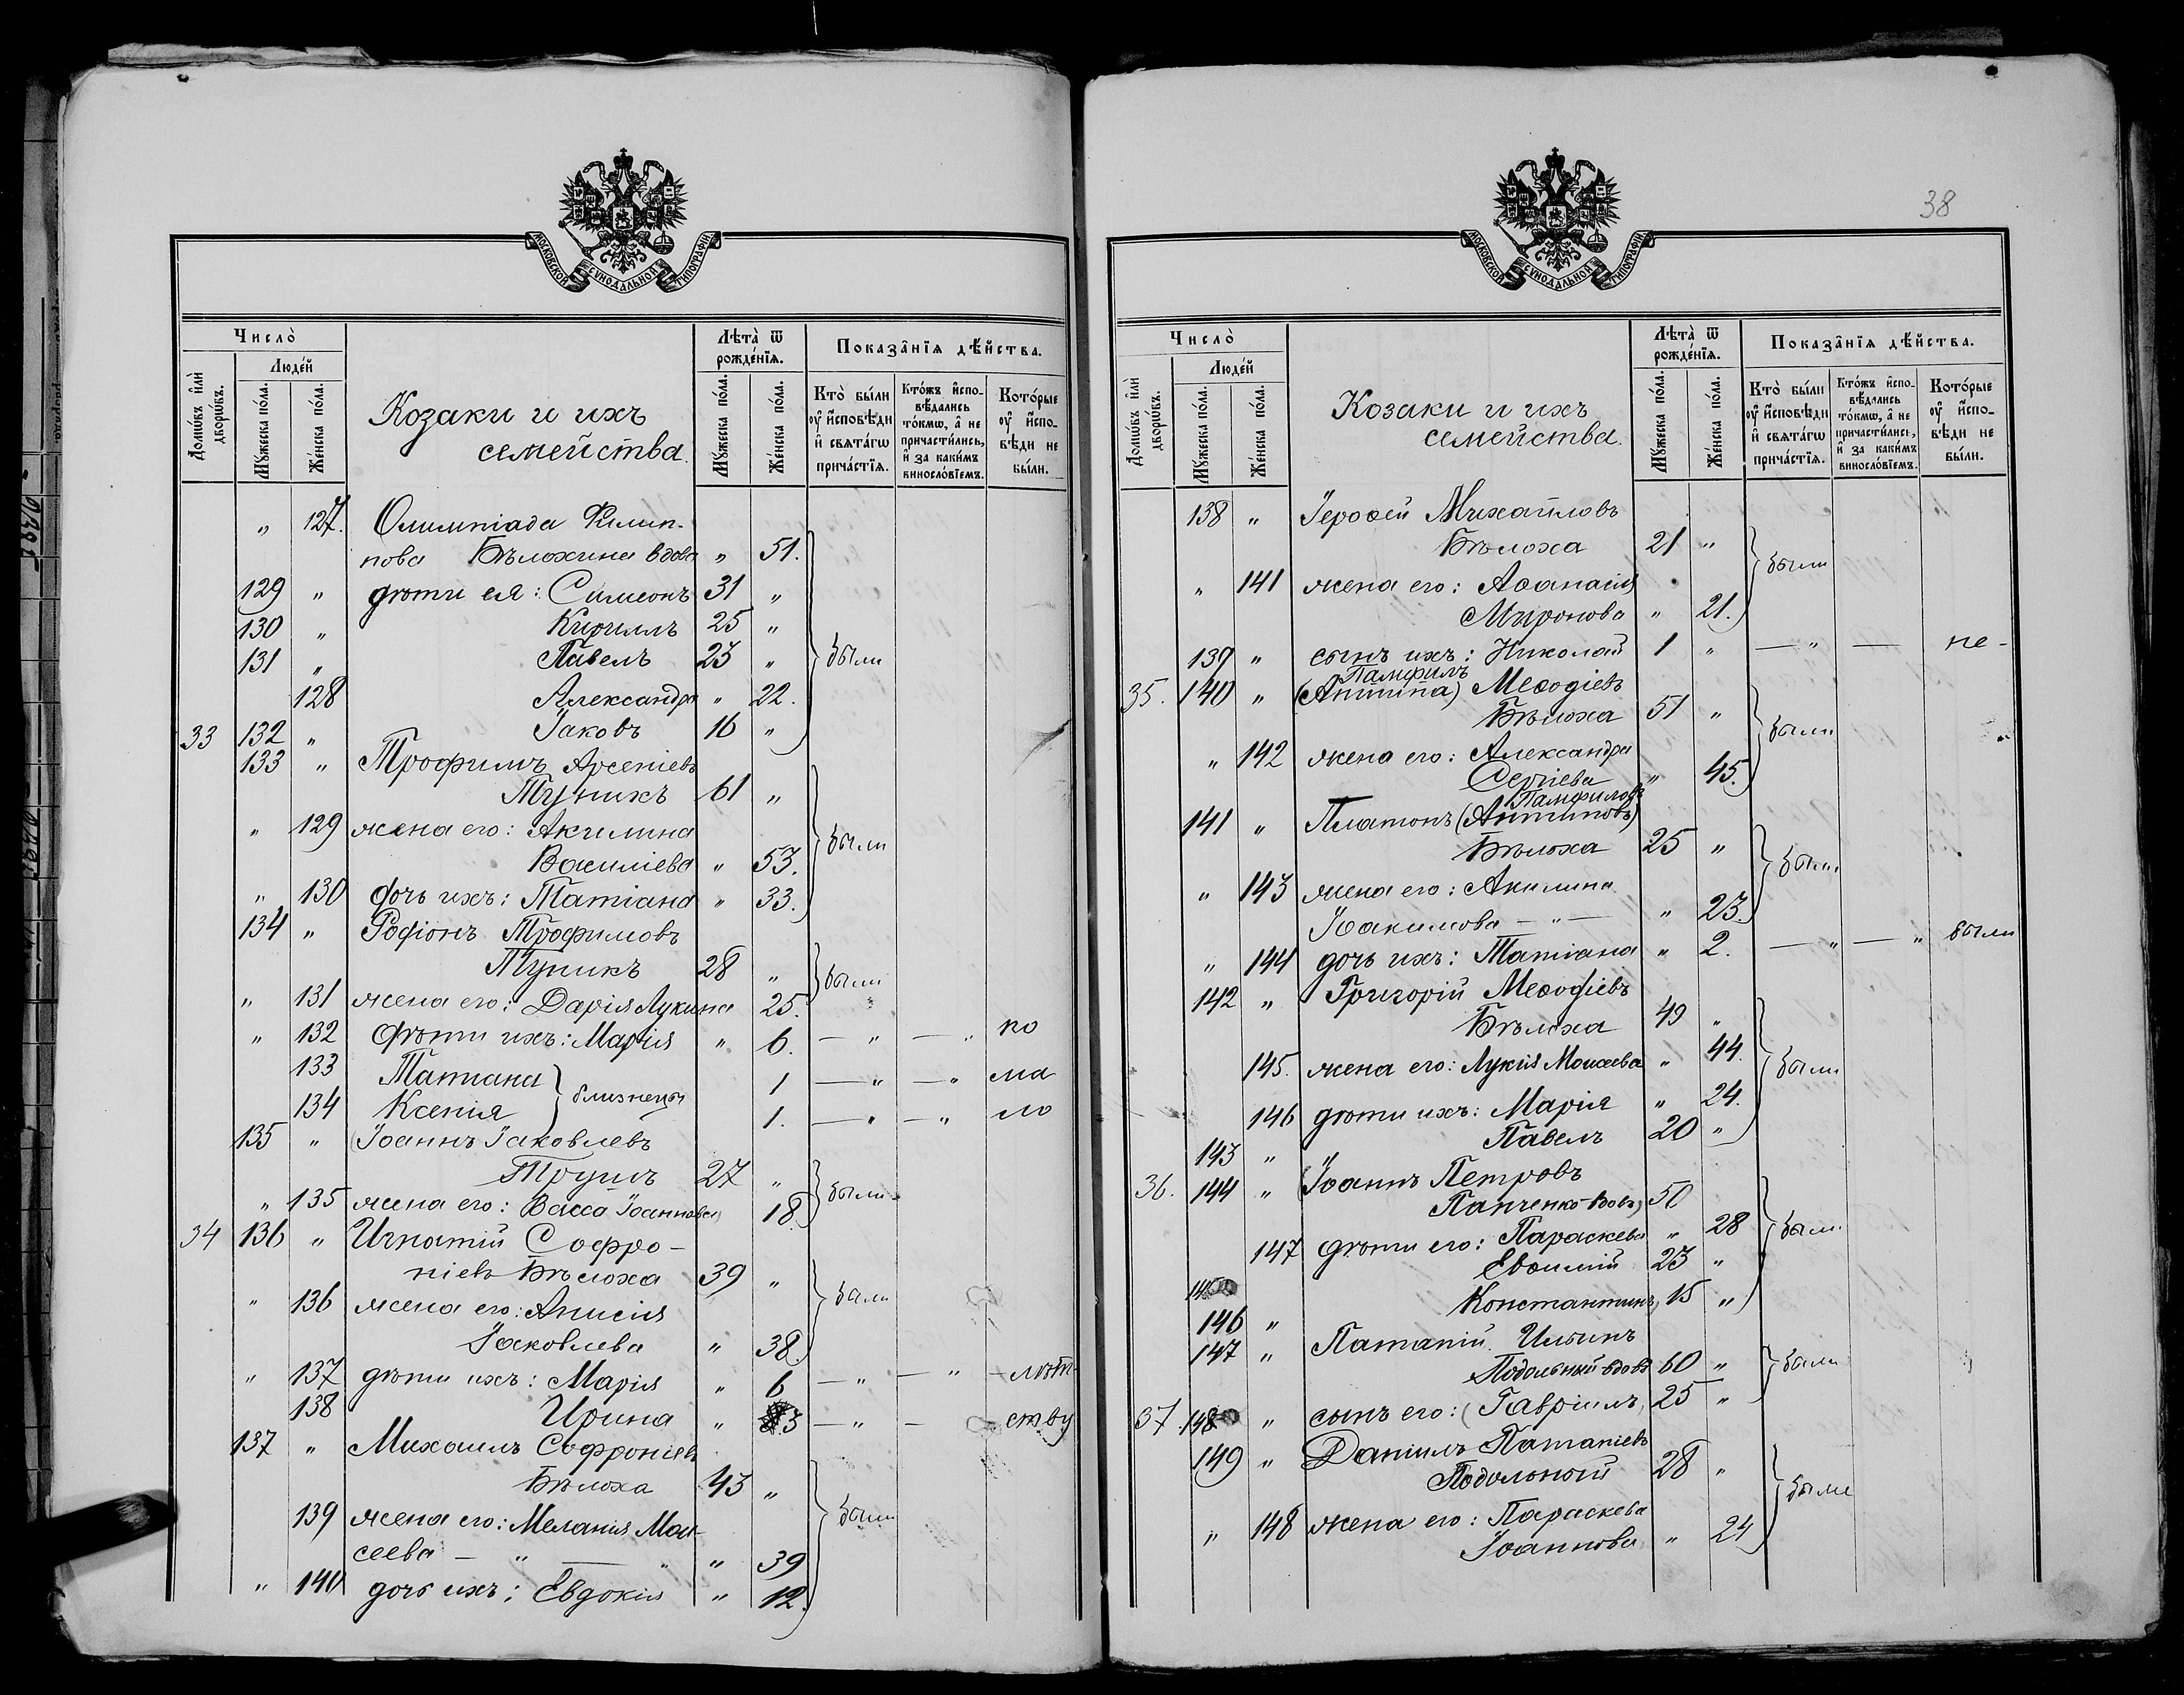 МОСКОВСКОЙ СѴНОДАЛЬНОЙ ТИПОГРАФІИ.
Число̀
Людей
Домѡвъ и҆лѝ дворѡвъ.
Мꙋжеска по́ла.
Же́нска по́ла.
Козаки и ихъ
семейства.
Лѣта̀ ѿ рожде́нїѧ.
Мꙋжеска по́ла.
Же́нска по́ла.
Показа̂нїѧ дѣ́йства.
Кто̀ бы́ли ᲂу҆ и҆сповѣди и҆ свѧта́гѡ прича́стїѧ.
Кто́жъ и҆спо-вѣдались то́кмѡ, а҆ не причасти́лись, и҆ за каки́мъ винословїемъ.
Кото́рые ᲂу҆ и҆спо-вѣди не бы́ли.
„ 127. Олимпіада Филип-
пова Бѣлохина вдова „ 51.
129 „ дѣти ея: Симеонъ 31 „
130 „ Кириллъ 25 „
131 „ Павелъ 23 „ были
128 Александра „ 22.
33 132 „ Іаковъ 16 „
133 „ Трофимъ Арсеніевъ
Тупикъ 61 „
„ 129 жена его: Акилина были
Василіева „ 53.
„ 130 дочь ихъ: Татіана „ 33.
134 „ Родіонъ Трофимовъ
Тупикъ 28 „ были
„ 131 жена его: Дарія Лукина 25.
„ 132 дѣти ихъ: Марія „ 6. — „ — „ по
133 Татіана 1 — „ — „ ма
близнецы
134 Ксенія 1. — „ — „ ло
135 „ Іоаннъ Іаковлевъ
27 „ были
„ 135 жена его: Васса Іоаннова 18.
34 136 „ Игнатій Софро-
ніевъ Бѣлоха 39 „
„ 136 жена его: Анисія были
Іаковлева „ 38.
„ 137 дѣти ихъ: Марія „ 6 — „ — „ — лѣт-
138 Ирина „ 3 — „ — ству
137 „ Михаилъ Софроніевъ
Бѣлоха 43 „
139 жена его: Меланія Мои- были
сеева — „ — „ „ 39
„ 140 дочь ихъ: Евдокія „ 12.
38
МОСКОВСКОЙ СѴНОДАЛЬНОЙ ТИПОГРАФІИ.
Число̀
Людей
Домѡвъ и҆лѝ дворѡвъ.
Мꙋжеска по́ла.
Же́нска по́ла.
Козаки и ихъ
семейства.
Лѣта̀ ѿ рожде́нїѧ.
Мꙋжеска по́ла.
Же́нска по́ла.
Показа̂нїѧ дѣ́йства.
Кто̀ бы́ли ᲂу҆ и҆сповѣди и҆ свѧта́гѡ прича́стїѧ.
Кто́жъ и҆спо-вѣдались то́кмѡ, а҆ не причасти́лись, и҆ за каки́мъ винословїемъ.
Кото́рые ᲂу҆ и҆спо-вѣди не бы́ли.
138 „ Іероѳей Михайловъ
Бѣлоха 21 „ были
„ 141 жена его: Аѳанасія
Миронова „ 21.
139 „ сынъ ихъ: Николай 1 „ — „ — не-
Памфилъ
35. 140 „ (Антипа) Меѳодіевъ
Бѣлоха 51 „ были
„ 142 жена его: Александра
Сергіева „ 45.
Памфиловъ
141 „ Платонъ (Антиповъ)
Бѣлоха 25 „ были
„ 143 жена его: Акилина
Іоакимова — „ — „ 23.
„ 144 дочь ихъ: Татіана „ 2. — „ — „ были
142 „ Григорій Меѳодіевъ
Бѣлоха 49 „
145. жена его: Лукія Моисеева „ 44. были
146 дѣти ихъ: Марія „ 24.
143 „ Павелъ 20 „
36. 144 „ Іоаннъ Петровъ
Панченко вдовъ 50
147 дѣти его: Параскева „ 28 были
145 Евѳимій 23 „
146 „ Константинъ 15 „
147 „ Патапій Ильинъ
Подольный вдовъ 60 „ были
37. 148 „ сынъ его: Гавріилъ 25 „
149 „ Даніилъ Патапіевъ
Подольный 28 „ были
„ 148 жена его: Параскева
Іоаннова „ 24